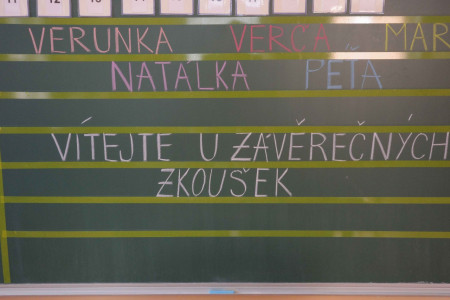 VERUNKA VERČA MAR
NATÁLKA PEŤA
VÍTEJTE U ZÁVĚREČNÝCH
ZKOUŠEK